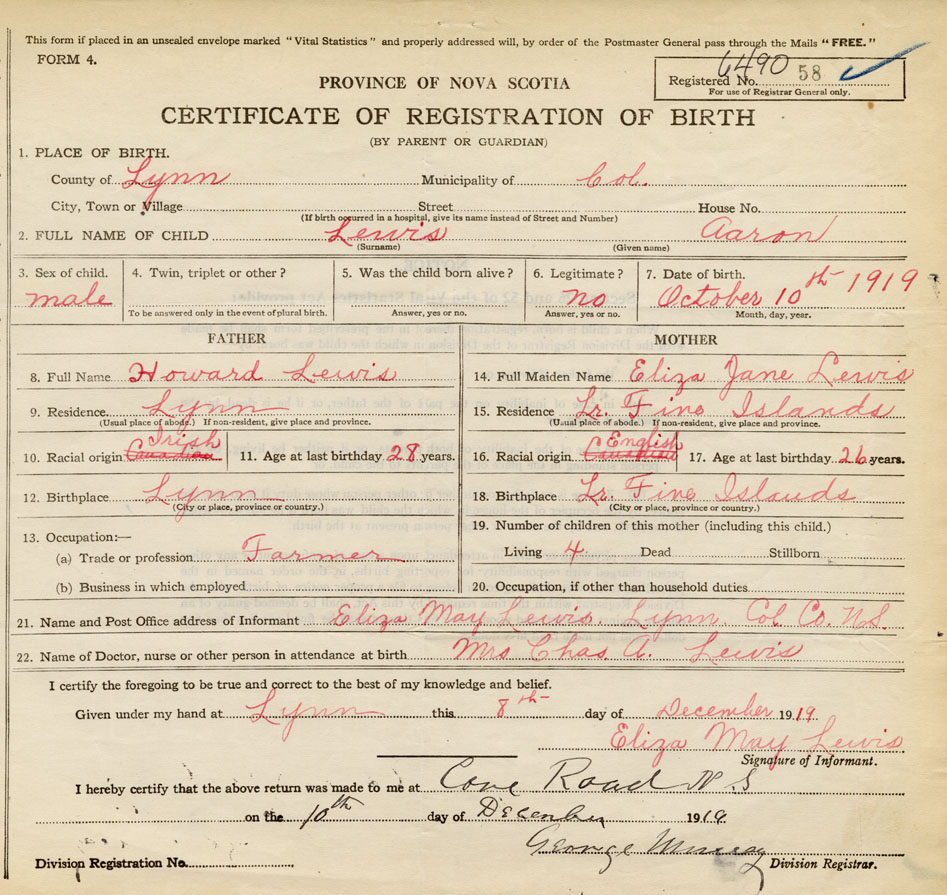 This form if placed in an unsealed envelope marked "Vital Statistics" and properly addressed will, by order of the Postmaster General pass through the Mails "FREE."
FORM 4.
6490
PROVINCE OF NOVA SCOTIA Registered No. 58
For use of Registrar General only.
CERTIFICATE OF REGISTRATION OF BIRTH
(BY PARENT OR GUARDIAN)
1. PLACE OF BIRTH.
County of Lynn Municipality of Col.
City, Town or Village Street House No.
(If birth occurred in a hospital, give its name instead of Street and Number)
2. FULL NAME OF CHILD Lewis Aaron
(Surname) (Given name)
3. Sex of child. 4. Twin, triplet or other? 5. Was the child born alive? 6. Legitimate? 7. Date of birth.
male no October 10th 1919
To be answered only in the event of plural birth. Answer, yes or no. Answer, yes or no. Month, day, year.
FATHER MOTHER
8. Full Name Howard Lewis 14. Full Maiden Name Eliza Jane Lewis
9. Residence Lynn 15. Residence Lr. Five Islands
(Usual place of abode.) If non-resident, give place and province. (Usual place of abode.) If non-resident, give place and province.
Irish English
10. Racial origin Canadian 11. Age at last birthday 28 years. 16. Racial origin Canadian 17. Age at last birthday 26 years.
12. Birthplace Lynn 18. Birthplace Lr. Five Islands
(City or place, province or country.) (City or place, province or country.)
13. Occupation:— 19. Number of children of this mother (including this child.)
(a) Trade or profession Farmer Living 4 Dead Stillborn
(b) Business in which employed 20. Occupation, if other than household duties
21. Name and Post Office address of Informant Eliza May Lewis. Lynn Col. Co. N.S.
22. Name of Doctor, nurse or other person in attendance at birth Mrs Chas. A. Lewis
I certify the foregoing to be true and correct to the best of my knowledge and belief.
Given under my hand at Lynn this 8th day of December 1919
Eliza May Lewis
Signature of Informant.
I hereby certify that the above return was made to me at Cove Road N.S
on the 10th day of December 1919
George Murray
Division Registration No. Division Registrar.